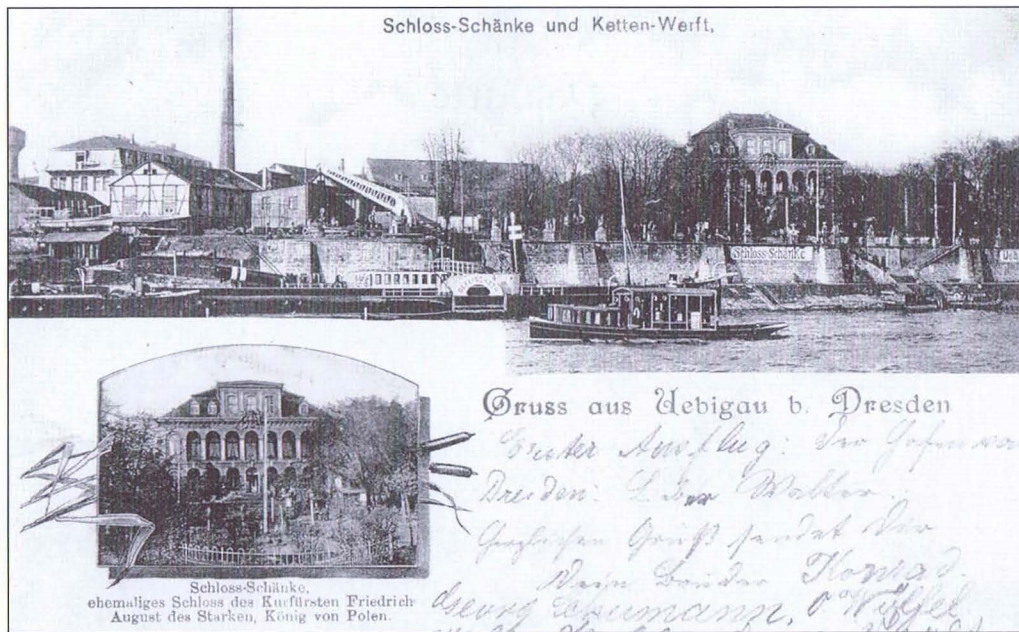 Schloss-Schänke und Ketten-Werft,
Schloss-Schänke
Gruss aus Uebigau b. Dresden
Erster Ausflug: Der Hafen von
Dresden. Walter.
Herzlichen Gruß sendet Dir
Dein Bruder Konrad.
Georg Schumann,
Schloss-Schänke,
ehemaliges Schloss des Kurfürsten Friedrich
August des Starken, König von Polen.